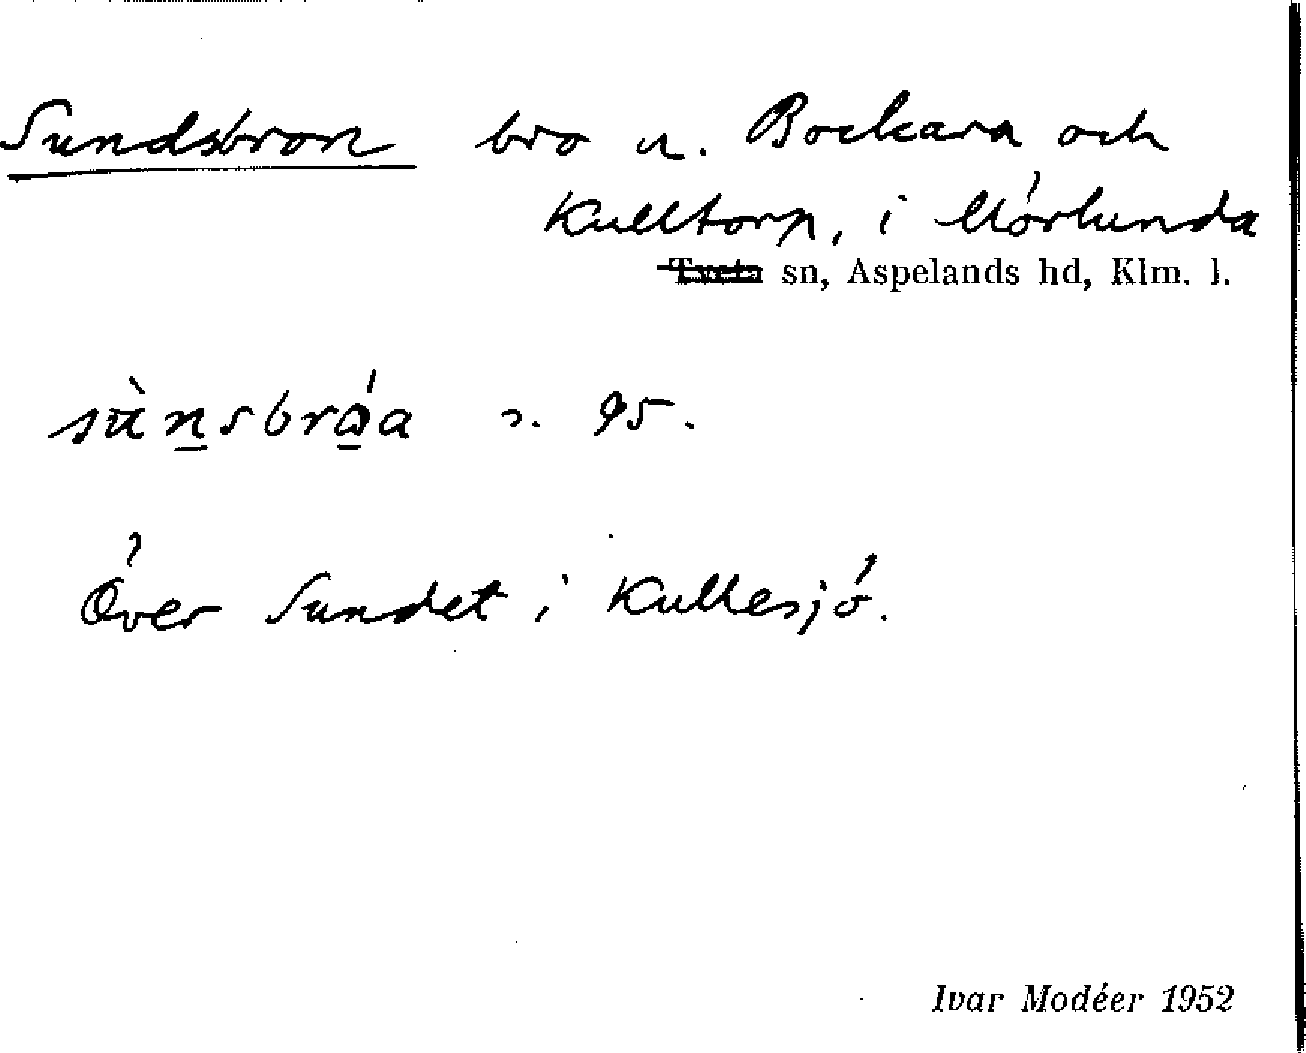 Sundsbron bro u. Bockara och
Kulltorp, i Mörlunda
Tveta sn, Aspelands hd, Klm. l.
sùn̲sbrǻ̲a s. 95.
Över Sundet i Kullesjö.
Ivar Modéer 1952